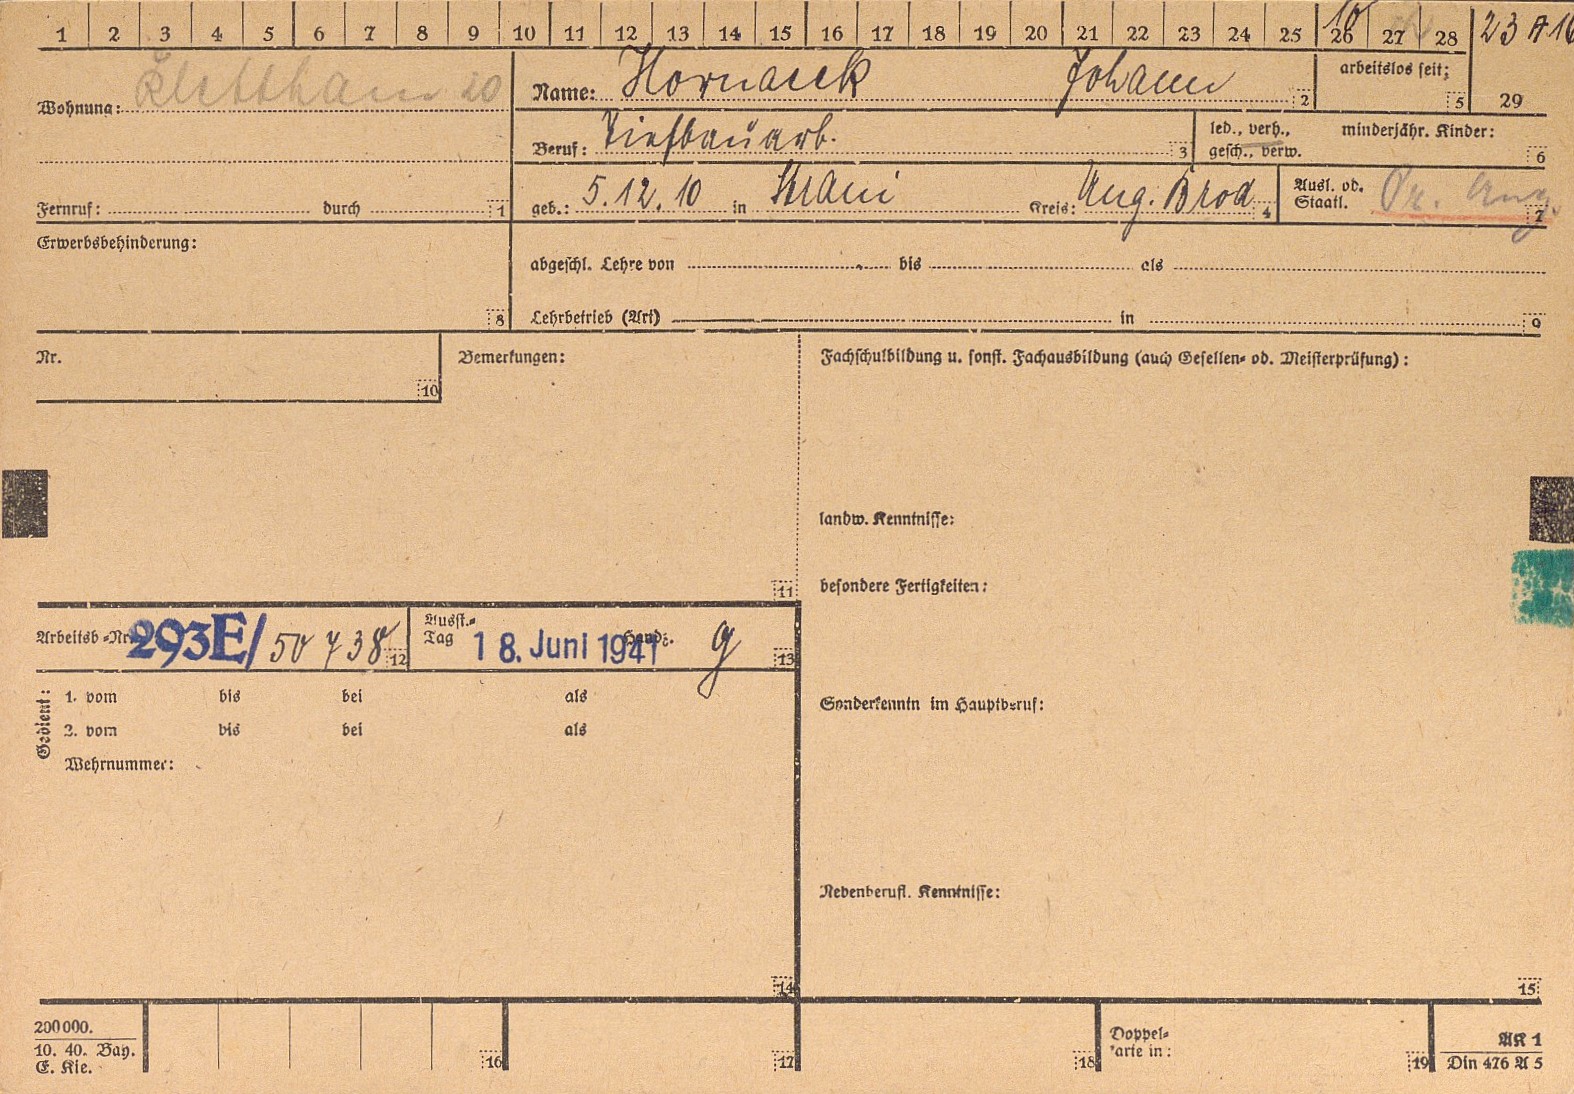 1 2 3 4 5 6 7 8 9 10 11 12 13 14 15 16 17 18 19 20 21 22 23 24 25 26 27 28
10 23 A 16
Wohnung: Klettham 20
Name: Hornacek Johann 2
arbeitslos seit: 5
29
Beruf: Tiefbauarb. 3
led., verh., gesch., verw.
minderjähr. Kinder: 6
Fernruf: durch 1
geb.: 5.12.10 in Strani Kreis: Ung. Brod 4
Ausl. od. Staatl. Pr. Ang. 7
Erwerbsbehinderung: 8
abgeschl. Lehre von bis als
Lehrbetrieb (Art) in 9
Nr. 10
Bemerkungen: 11
Fachschulbildung u. sonst. Fachausbildung (auch Gesellen- od. Meisterprüfung):
landw. Kenntnisse:
besondere Fertigkeiten:
Arbeitsb.-Nr. 293E/50 738 12
Ausst.-Tag 18. Juni 1941 Handz. g 13
Gedient:
1. vom bis bei als
2. vom bis bei als
Wehrnummer:
14
Sonderkenntn im Hauptberuf:
Nebenberufl. Kenntnisse:
15
200000.
10. 40. Bay.
E. Kie.
16 17 18
Doppel-
karte in: 19
AK 1
Din 476 A 5